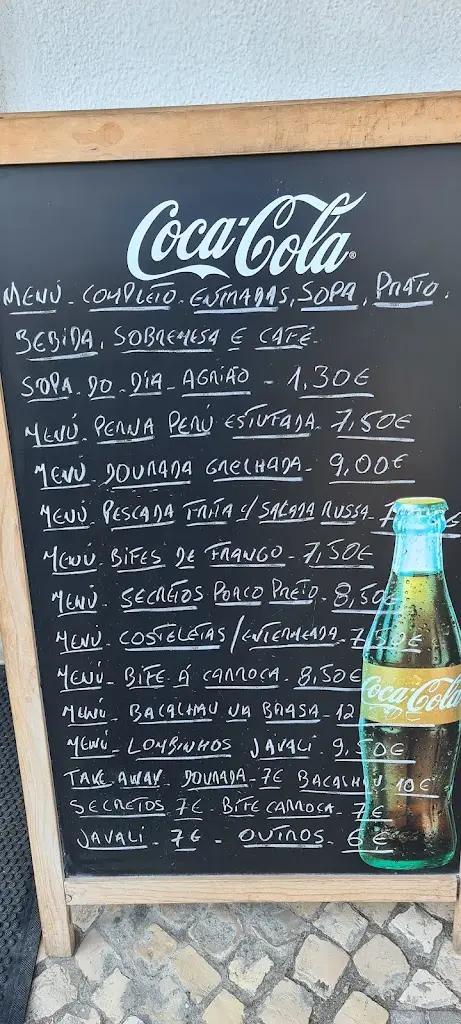 Coca-Cola
MENÚ - COMPLETO - ENTRADAS, SOPA, PRATO,
BEBIDA, SOBREMESA E CAFÉ
SOPA DO DIA - AGRIÃO - 1,30€
MENÚ PERNA PERÚ ESTUFADA - 7,50€
MENÚ DOURADA GRELHADA - 9,00€
MENÚ PESCADA FRITA C/ SALADA RUSSA -
MENÚ - BIFES DE FRANGO - 7,50€
MENÚ - SECRETOS PORCO PRETO - 8,50€
MENÚ - COSTELETAS / ENTREMEADA - 7,50€
MENÚ - BIFE Á CARROÇA - 8,50€
MENÚ - BACALHAU NA BRASA - 12
Coca-Cola
MENÚ - LOMBINHOS JAVALI 9,50€
TAKE AWAY - DOURADA - 7€ BACALHAU - 10€
SECRETOS 7€ - BIFE CARROÇA - 7€
JAVALI - 7€ - OUTROS - 6€